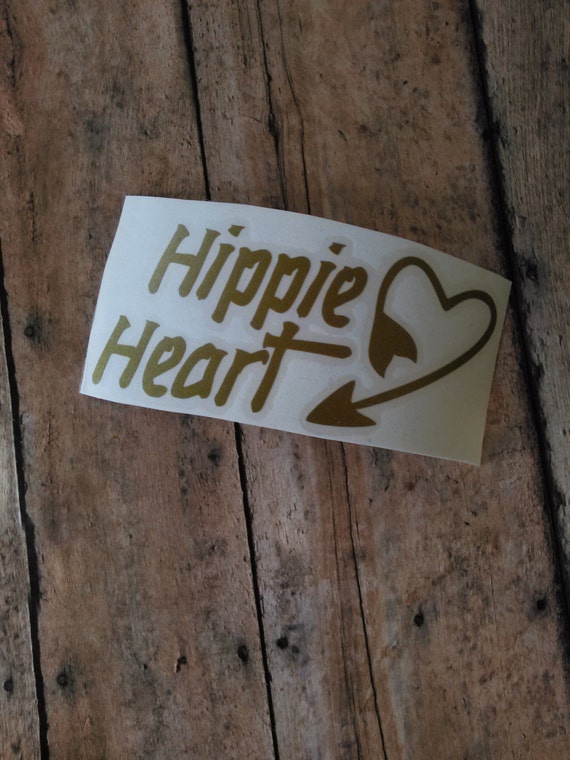 Hippie
Heart